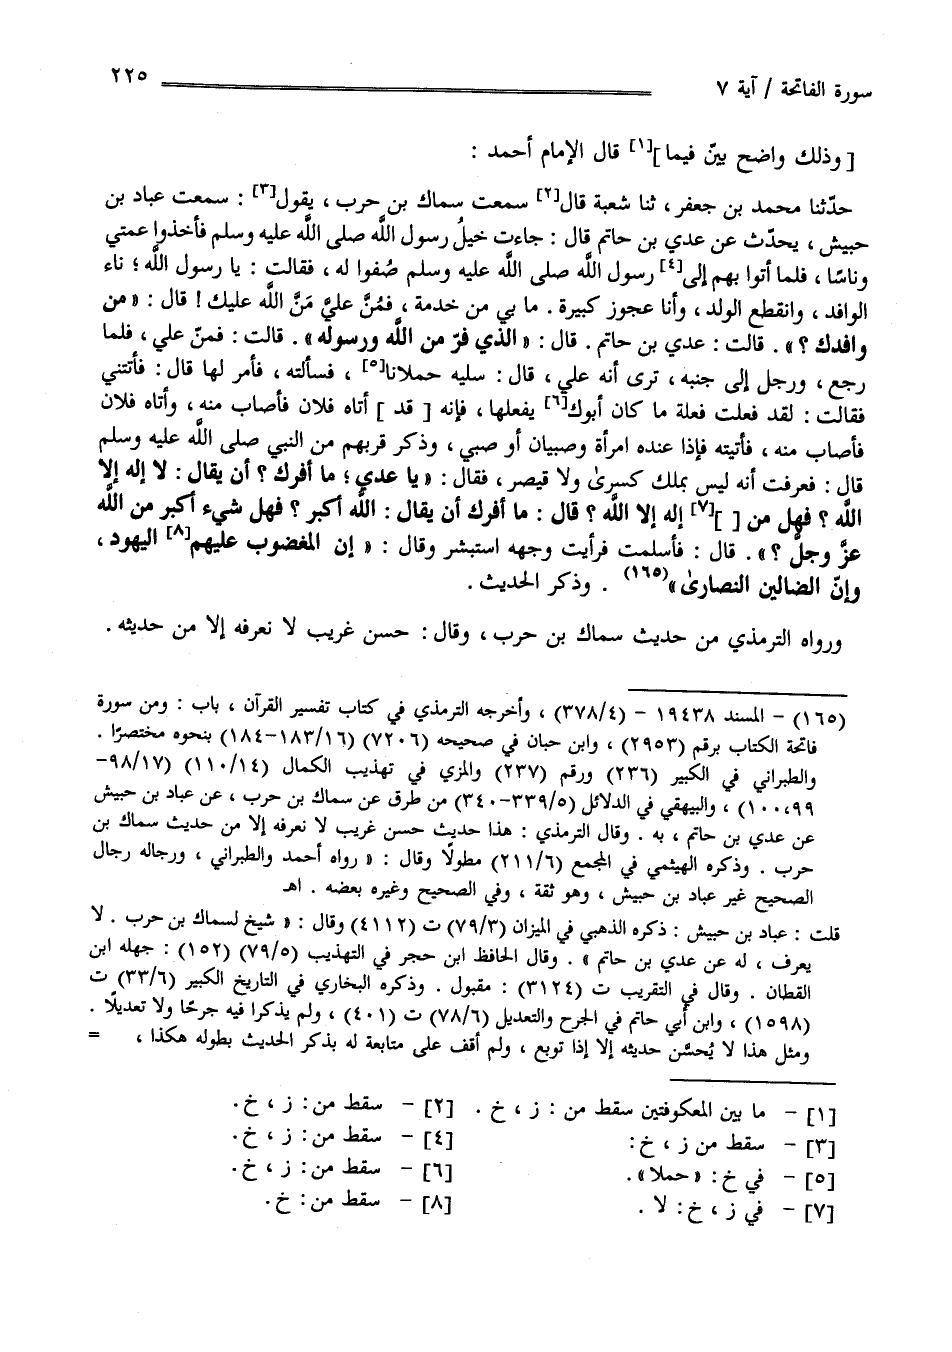 سورة الفاتحة / آية ٧
٢٢٥
[ وذلك واضح بيّن فيما ][١] قال الإمام أحمد :
حدّثنا محمد بن جعفر ، ثنا شعبة قال[٢] سمعت سماك بن حرب ، يقول[٣] : سمعت عباد بن
حبيش ، يحدّث عن عدي بن حاتم قال : جاءت خيلُ رسول اللَّه صلى اللَّه عليه وسلم فأخذوا عمتي
وناسًا ، فلما أتوا بهم إلى[٤] رسول اللَّه صلى اللَّه عليه وسلم صُفوا له ، فقالت : يا رسول اللَّه ؛ ناء
الوافد ، وانقطع الولد ، وأنا عجوز كبيرة . ما بي من خدمة ، فمُنَّ عليَّ مَنَّ اللَّه عليك ! قال : « من
وافدك ؟ » . قالت : عدي بن حاتم . قال : « الذي فرّ من اللَّه ورسوله » . قالت : فمنّ علي ، فلما
رجع ، ورجل إلى جنبه ، ترى أنه علي ، قال : سليه حملانا[٥] ، فسألته ، فأمر لها قال : فأتتني
فقالت : لقد فعلت فعلة ما كان أبوك[٦] يفعلها ، فإنه [ قد ] أتاه فلان فأصاب منه ، وأتاه فلان
فأصاب منه ، فأتيته فإذا عنده امرأة وصبيان أو صبي ، وذكر قربهم من النبي صلى اللَّه عليه وسلم
قال : فعرفت أنه ليس بملك كسرىٰ ولا قيصر ، فقال : « يا عدي ؛ ما أفرك ؟ أن يقال : لا إله إلا
اللَّه ؟ فهل من [ ][٧] إله إلا اللَّه ؟ قال : ما أفرك أن يقال : اللَّه أكبر ؟ فهل شيء أكبر من اللَّه
عزَّ وجلَّ ؟ » . قال : فأسلمت فرأيت وجهه استبشر وقال : « إن المغضوب عليهم[٨] اليهود ،
وإنّ الضالين النصارىٰ »(١٦٥) . وذكر الحديث .
ورواه الترمذي من حديث سماك بن حرب ، وقال : حسن غريب لا نعرفه إلا من حديثه .
(١٦٥) - المسند ١٩٤٣٨ - (٣٧٨/٤) ، وأخرجه الترمذي في كتاب تفسير القرآن ، باب : ومن سورة
فاتحة الكتاب برقم (٢٩٥٣) ، وابن حبان في صحيحه (٧٢٠٦) (١٨٣/١٦-١٨٤) بنحوه مختصرًا .
والطبراني في الكبير (٢٣٦) ورقم (٢٣٧) والمزي في تهذيب الكمال (١١٠/١٤) (٩٨/١٧-
١٠٠،٩٩) ، والبيهقي في الدلائل (٣٣٩/٥-٣٤٠) من طرق عن سماك بن حرب ، عن عباد بن حبيش
عن عدي بن حاتم ، به . وقال الترمذي : هذا حديث حسن غريب لا نعرفه إلا من حديث سماك بن
حرب . وذكره الهيثمي في المجمع (٢١١/٦) مطولًا وقال : « رواه أحمد والطبراني ، ورجاله رجال
الصحيح غير عباد بن حبيش ، وهو ثقة ، وفي الصحيح وغيره بعضه . اهـ
قلت : عباد بن حبيش : ذكره الذهبي في الميزان (٧٩/٣) ت (٤١١٢) وقال : « شيخ لسماك بن حرب . لا
يعرف ، له عن عدي بن حاتم » . وقال الحافظ ابن حجر في التهذيب (٧٩/٥) (١٥٢) : جهله ابن
القطان . وقال في التقريب ت (٣١٢٤) : مقبول . وذكره البخاري في التاريخ الكبير (٣٣/٦) ت
(١٥٩٨) ، وابن أبي حاتم في الجرح والتعديل (٧٨/٦) ت (٤٠١) ، ولم يذكرا فيه جرحًا ولا تعديلًا .
ومثل هذا لا يُحسَّن حديثه إلا إذا توبع ، ولم أقف على متابعة له بذكر الحديث بطوله هكذا ، =
[١] - ما بين المعكوفتين سقط من : ز ، خ . [٢] - سقط من : ز ، خ .
[٣] - سقط من ز ، خ : [٤] - سقط من : ز ، خ .
[٥] - في خ : « حملا » . [٦] - سقط من : ز ، خ .
[٧] - في ز ، خ : لا . [٨] - سقط من : خ .